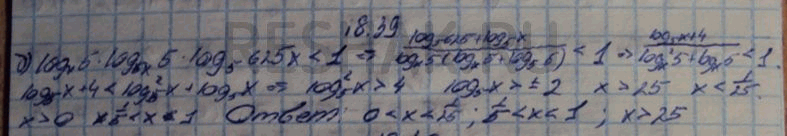 18.39
б) logₓ5 · log₅ₓ5 · log₅ 625x < 1 ⇒ (log₅625 + log₅x) / (log₅5 (logₓ5 + log₅5)) < 1 ⇒ (log₅x + 4) / (log²ₓ5 + logₓ5) < 1.
log₅x + 4 < log₅²x + log₅x ⇒ log₅²x > 4 log₅x > ±2 x > 25 x < 1/25.
x > 0 1/5 < x < 1 Ответ: 0 < x < 1/25; 1/5 < x < 1; x > 25
RESHAK.RU